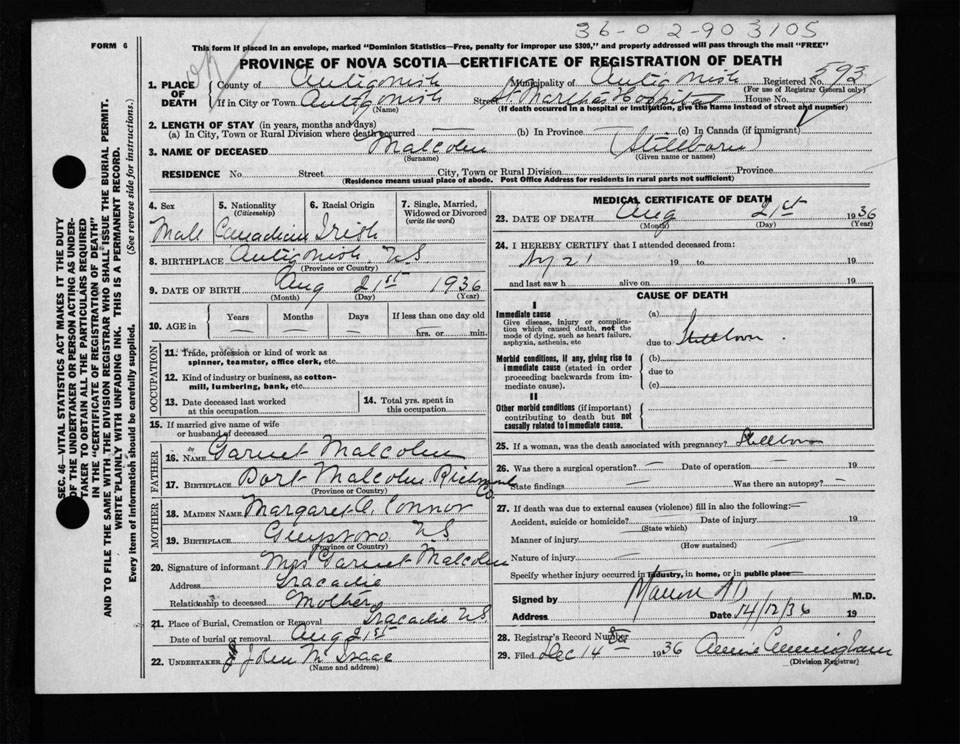 36-02-903105
FORM 6
This form if placed in an envelope, marked "Dominion Statistics—Free, penalty for improper use $300," and properly addressed will pass through the mail "FREE"
PROVINCE OF NOVA SCOTIA—CERTIFICATE OF REGISTRATION OF DEATH
1. PLACE OF DEATH County of Antigonish Municipality of Antigonish Registered No. 593
(For use of Registrar General only)
If in City or Town Antigonish Street St. Martha's Hospital House No.
(Name) (If death occurred in a hospital or institution, give the name instead of street and number)
2. LENGTH OF STAY (in years, months and days)
(a) In City, Town or Rural Division where death occurred — (b) In Province — (c) In Canada (if immigrant)
3. NAME OF DECEASED Malcolm (Stillborn)
(Surname) (Given name or names)
RESIDENCE No. Street City, Town or Rural Division Province
(Residence means usual place of abode. Post Office Address for residents in rural parts not sufficient)
4. Sex 5. Nationality (Citizenship) 6. Racial Origin 7. Single, Married, Widowed or Divorced (write the word)
Male Canadian Irish
8. BIRTHPLACE Antigonish, NS
(Province or Country)
9. DATE OF BIRTH Aug 21st 1936
(Month) (Day) (Year)
10. AGE in Years Months Days If less than one day old
hrs. or min.
OCCUPATION
11. Trade, profession or kind of work as spinner, teamster, office clerk, etc.
12. Kind of industry or business, as cotton-mill, lumbering, bank, etc.
13. Date deceased last worked at this occupation
14. Total yrs. spent in this occupation
15. If married give name of wife or husband of deceased
FATHER
16. NAME Garnet Malcolm
17. BIRTHPLACE Port Malcolm Richmond Co
(Province or Country)
MOTHER
18. MAIDEN NAME Margaret C. Connor
19. BIRTHPLACE Guysboro NS
(Province or Country)
20. Signature of informant Mrs Garnet Malcolm
Address Tracadie
Relationship to deceased Mother
21. Place of Burial, Cremation or Removal Tracadie NS
Date of burial or removal Aug 21st
22. UNDERTAKER John McIsaac
(Name and address)
MEDICAL CERTIFICATE OF DEATH
23. DATE OF DEATH Aug 21st 1936
(Month) (Day) (Year)
24. I HEREBY CERTIFY that I attended deceased from:
21 19 to 19
and last saw h alive on 19
CAUSE OF DEATH
I
Immediate cause (a)
Give disease, injury or complication which caused death, not the mode of dying, such as heart failure, asphyxia, asthenia, etc
due to Stillborn.
Morbid conditions, if any, giving rise to immediate cause (stated in order proceeding backwards from immediate cause).
(b)
due to
(c)
II
Other morbid conditions (if important) contributing to death but not causally related to immediate cause.
25. If a woman, was the death associated with pregnancy? Stillborn
26. Was there a surgical operation? — Date of operation — 19
State findings — Was there an autopsy? —
27. If death was due to external causes (violence) fill in also the following: —
Accident, suicide or homicide? Date of injury 19
(State which)
Manner of injury
(How sustained)
Nature of injury —
Specify whether injury occurred in industry, in home, or in public place
Signed by M.D.
Address Date 14/12/36 19
28. Registrar's Record Number
29. Filed Dec 14 1936 Annie Cunningham
(Division Registrar)
SEC. 46—VITAL STATISTICS ACT MAKES IT THE DUTY
OF THE UNDERTAKER OR PERSON ACTING AS UNDER-
TAKER TO OBTAIN ALL THE PARTICULARS REQUIRED
IN THE "CERTIFICATE OF REGISTRATION OF DEATH"
AND TO FILE THE SAME WITH THE DIVISION REGISTRAR WHO SHALL ISSUE THE BURIAL PERMIT.
WRITE PLAINLY WITH UNFADING INK. THIS IS A PERMANENT RECORD.
Every item of information should be carefully supplied. (See reverse side for instructions.)